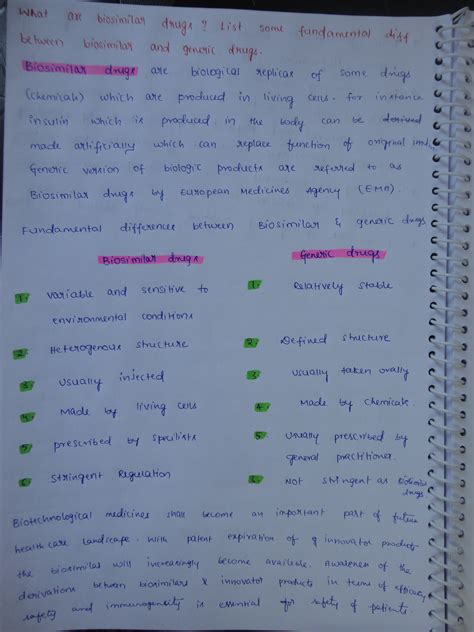 What are biosimilar drugs? List some fundamental diff
between biosimilar and generic drugs.
Biosimilar drugs are biological replicas of some drugs
(chemicals) which are produced in living cells. for instance
insulin which is produced in the body can be derived
made artificially which can replace function of original ind.
Generic version of biologic products are referred to as
Biosimilar drugs by European Medicines Agency (EMA).
Fundamental differences between Biosimilar & generic drugs
Biosimilar drugs Generic drugs
1. variable and sensitive to 1. Relatively stable
environmental conditions
2. Heterogenous structure 2. Defined structure
3. usually injected 3. usually taken orally
4. Made by living cells 4. Made by chemicals.
5. prescribed by specilists 5. usually prescribed by
general practitioner.
6. Stringent Regulation 6. Not stringent as Biosimilar
drugs
Biotechnological medicines shall become an important part of future
health care landscape. With patent expiration of innovator products
the biosimilars will increasingly become available. awareness of the
derivations between biosimilars & innovator products in terms of efficacy,
safety and immunogenicity is essential for safety of patients.